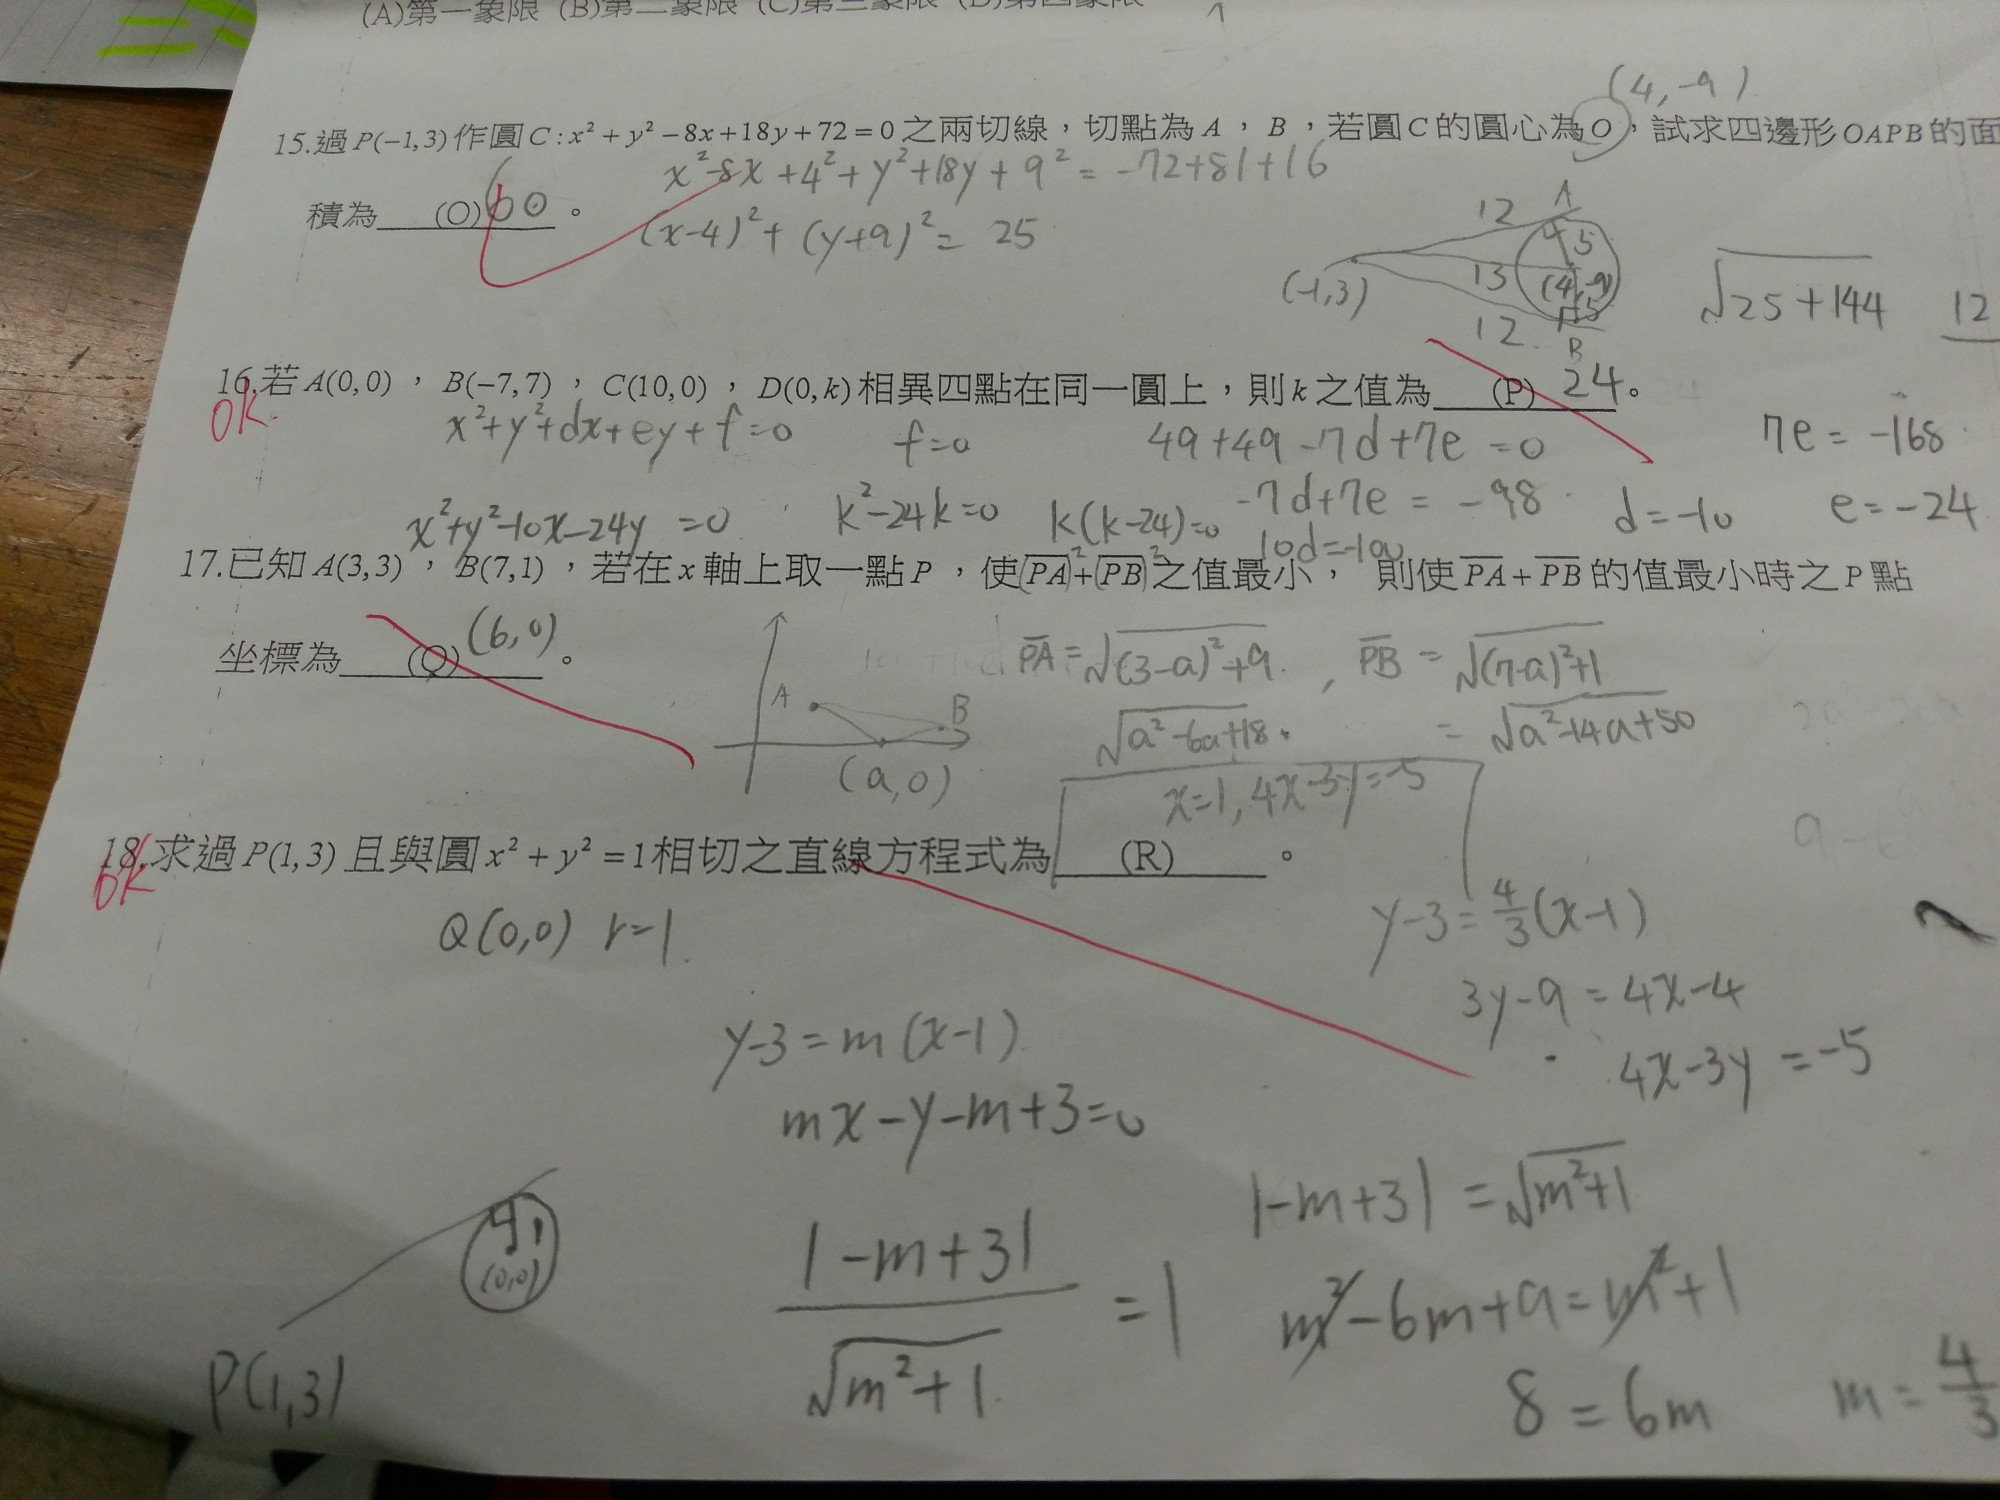 (A)第一象限 (B)第二象限 (C)第三象限 (D)第四象限
(4,-9)
15.過P(-1,3)作圓C:x²+y²-8x+18y+72=0之兩切線,切點為A,B,若圓C的圓心為O,試求四邊形OAPB的面
x²-8x+4²+y²+18y+9²=-72+81+16
積為 (O) 60 。
(x-4)²+(y+9)²=25
A
12
5
13
(4,-9)
(-1,3)
5
12
B
√25+144
12
16.若A(0,0),B(-7,7),C(10,0),D(0,k)相異四點在同一圓上,則k之值為 (P) 24。
OK.
x²+y²+dx+ey+f=0
f=0
49+49-7d+7e=0
7e=-168
x²+y²-10x-24y=0
k²-24k=0
k(k-24)=0
-7d+7e=-98
d=-10
e=-24
10d=-100
17.已知A(3,3),B(7,1),若在x軸上取一點P,使(PA)²+(PB)²之值最小,則使PA+PB的值最小時之P點
坐標為 (Q) (6,0) 。
PA=√(3-a)²+9. , PB=√(7-a)²+1
A
B
(a,0)
√a²-6a+18.
=√a²-14a+50
x=1,4x-3y=-5
18.求過P(1,3)且與圓x²+y²=1相切之直線方程式為 (R) 。
OK
Q(0,0) r=1.
y-3=4/3(x-1)
3y-9=4x-4
4x-3y=-5
y-3=m(x-1)
mx-y-m+3=0
1
(0,0)
P(1,3)
|-m+3|/√m²+1=1
|-m+3|=√m²+1
m²-6m+9=m²+1
8=6m
m=4/3